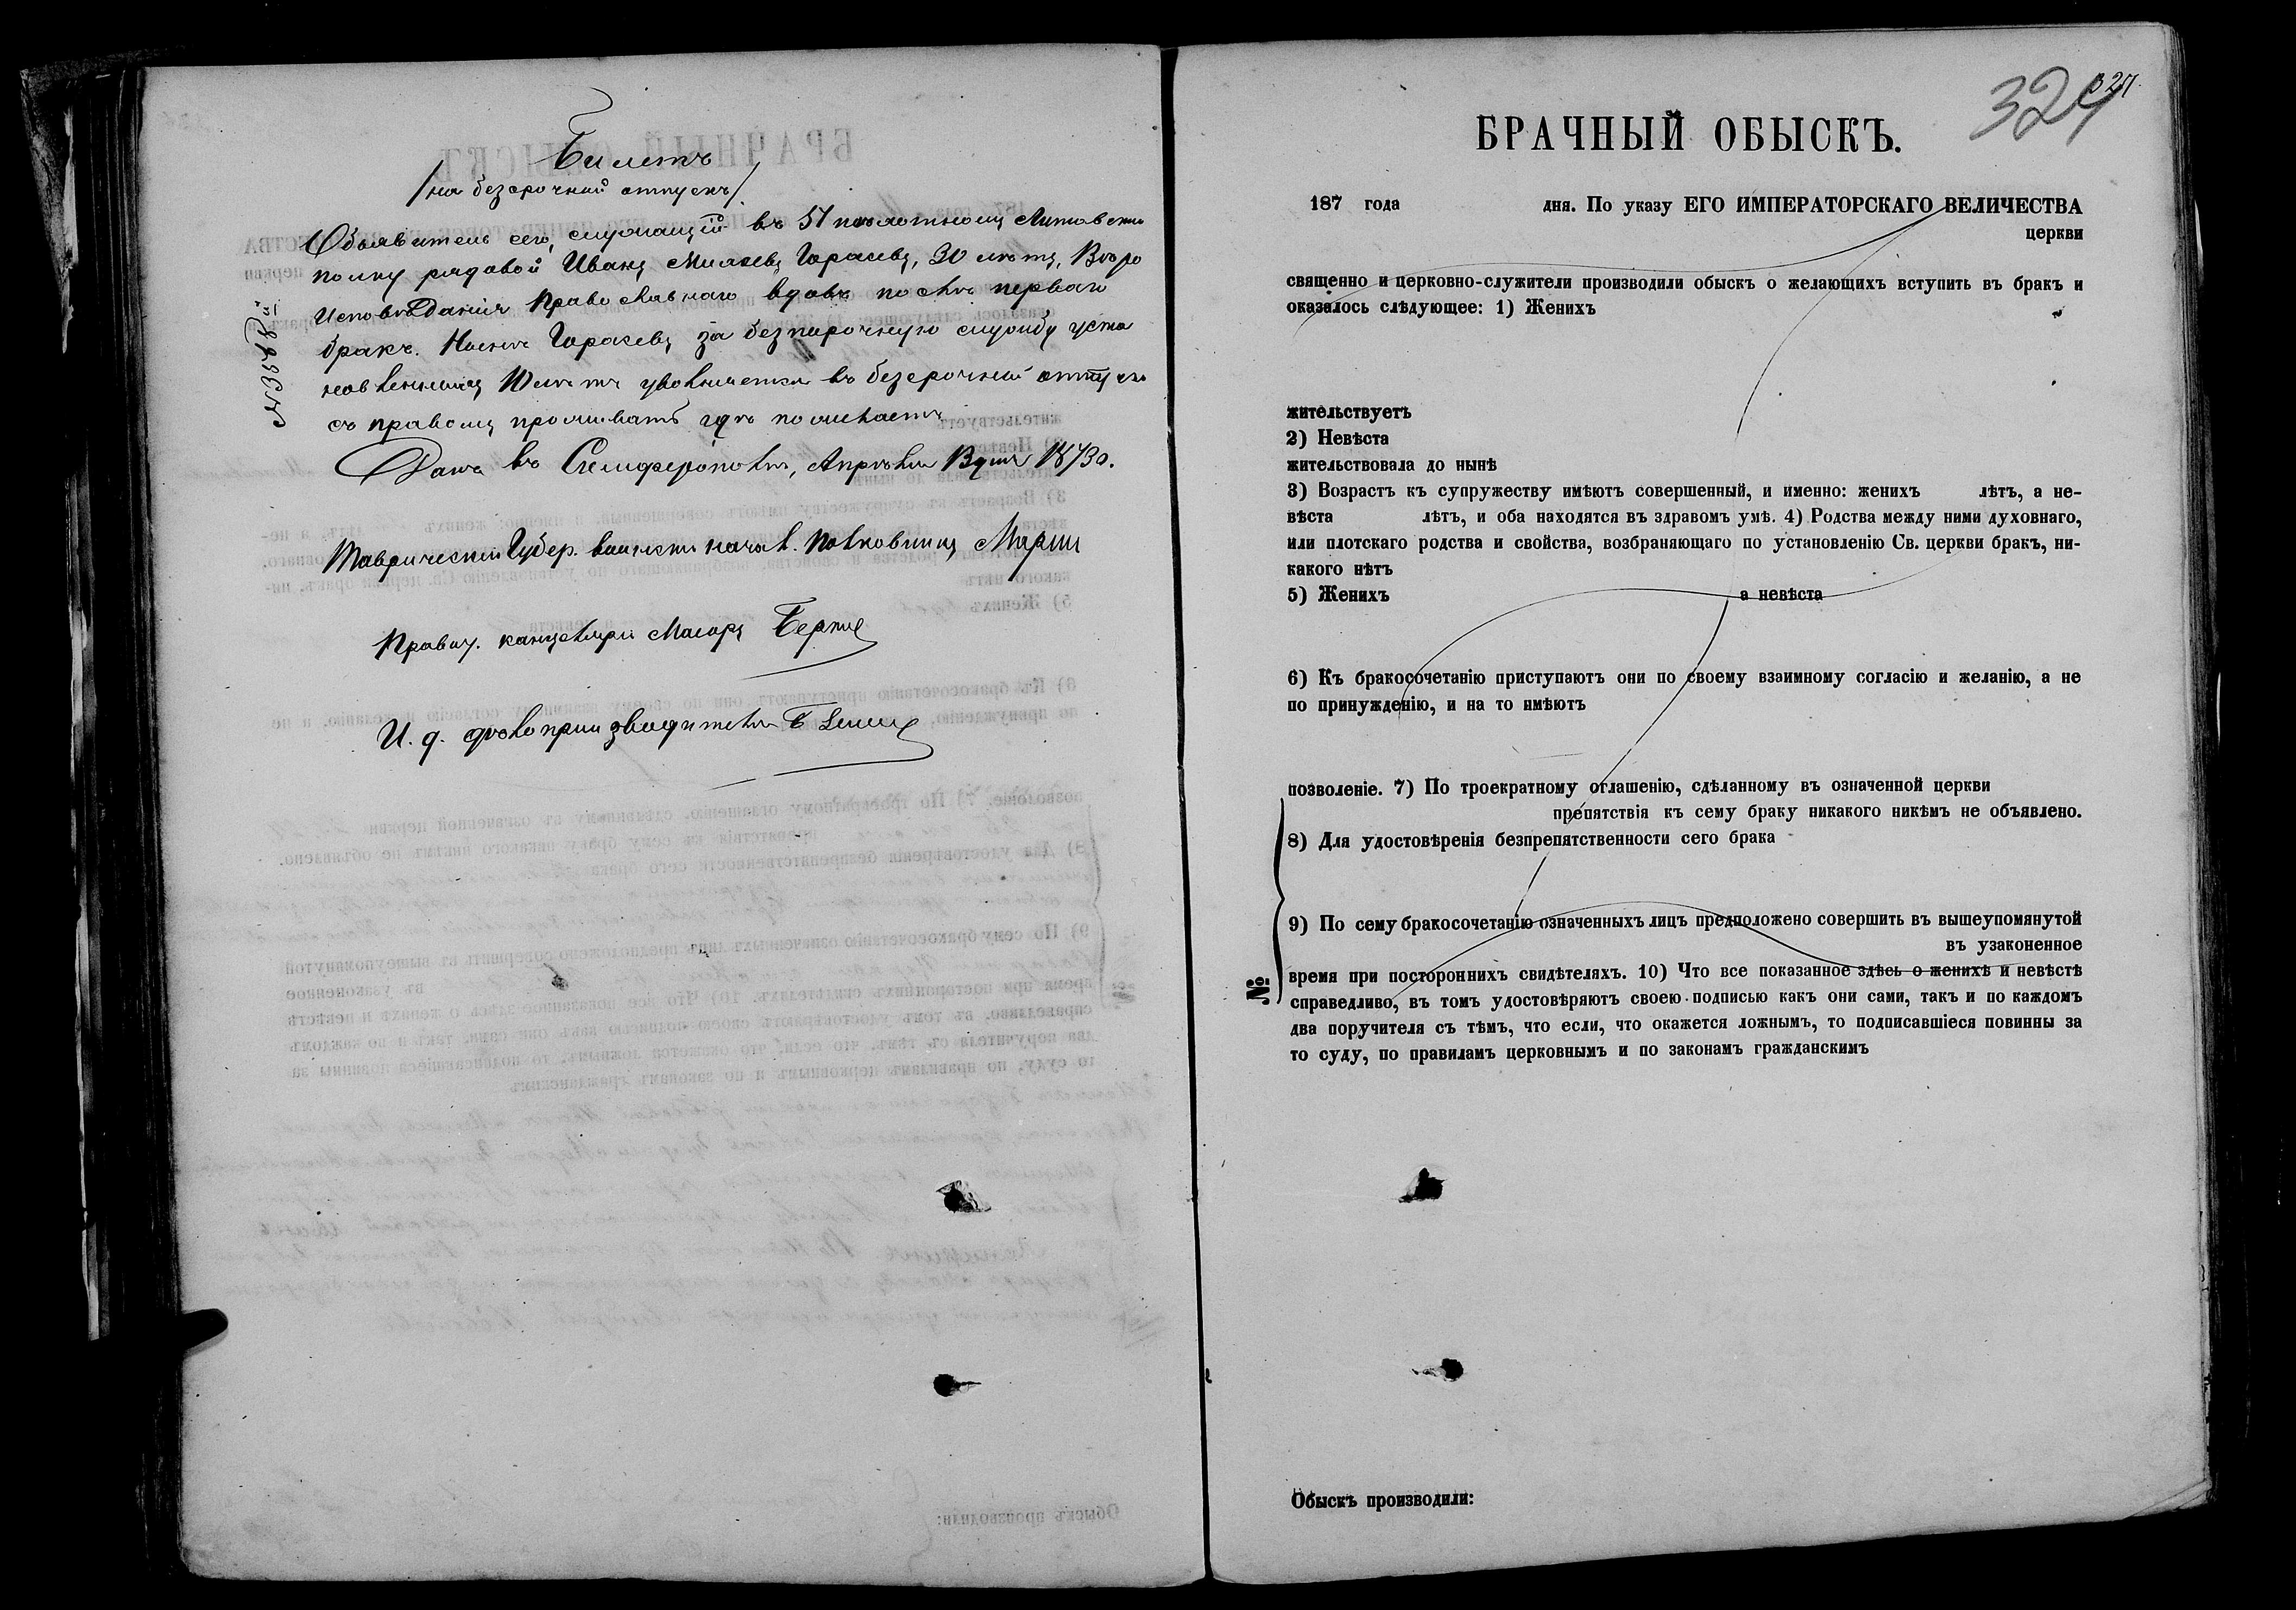 Билетъ
/на безсрочный отпускъ/
Объявитель сего, служащій въ 51 пѣхотномъ Литовскомъ
полку рядовой Иванъ Горасевъ, 30 лѣтъ, Вѣро
исповѣданія Православнаго вдовъ послѣ перваго
брака. Нынѣ Горасевъ за безпорочную службу уста
новленныхъ лѣтъ увольняется въ безсрочный отпускъ
съ правомъ проживать гдѣ пожелаетъ
Данъ въ Симферополѣ, Апрѣля 1873
Таврическій Губер. воинскій начал. Полковникъ
Правит. канцеляріи Маіоръ
И. д. дѣлопроизводителя
324
БРАЧНЫЙ ОБЫСКЪ.
187 года дня. По указу ЕГО ИМПЕРАТОРСКАГО ВЕЛИЧЕСТВА
церкви
священно и церковно-служители производили обыскъ о желающихъ вступить въ бракъ и
оказалось слѣдующее: 1) Женихъ
жительствуетъ
2) Невѣста
жительствовала до нынѣ
3) Возрастъ къ супружеству имѣютъ совершенный, и именно: женихъ лѣтъ, а не-
вѣста лѣтъ, и оба находятся въ здравомъ умѣ. 4) Родства между ними духовнаго,
или плотскаго родства и свойства, возбраняющаго по установленію Св. церкви бракъ, ни-
какого нѣтъ
5) Женихъ а невѣста
6) Къ бракосочетанію приступаютъ они по своему взаимному согласію и желанію, а не
по принужденію, и на то имѣютъ
позволеніе. 7) По троекратному оглашенію, сдѣланному въ означенной церкви
препятствія къ сему браку никакого никѣмъ не объявлено.
8) Для удостовѣренія безпрепятственности сего брака
9) По сему бракосочетанію означенныхъ лицъ предположено совершить въ вышеупомянутой
въ узаконенное
время при постороннихъ свидѣтеляхъ. 10) Что все показанное здѣсь о женихѣ и невѣстѣ
справедливо, въ томъ удостовѣряютъ своею подписью какъ они сами, такъ и по каждомъ
два поручителя съ тѣмъ, что если, что окажется ложнымъ, то подписавшіеся повинны за
то суду, по правиламъ церковнымъ и по законамъ гражданскимъ
№
Обыскъ производили: